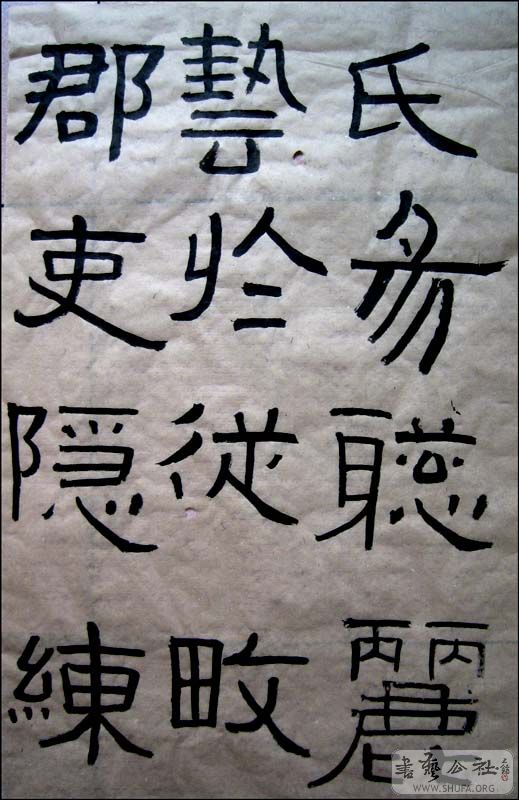 氏易聰麗
藝於從畋
郡吏隱練
書藝公社
WWW.SHUFA.ORG